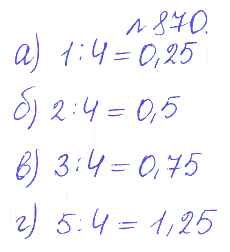 № 870.
а) 1:4 = 0,25
б) 2:4 = 0,5
в) 3:4 = 0,75
г) 5:4 = 1,25